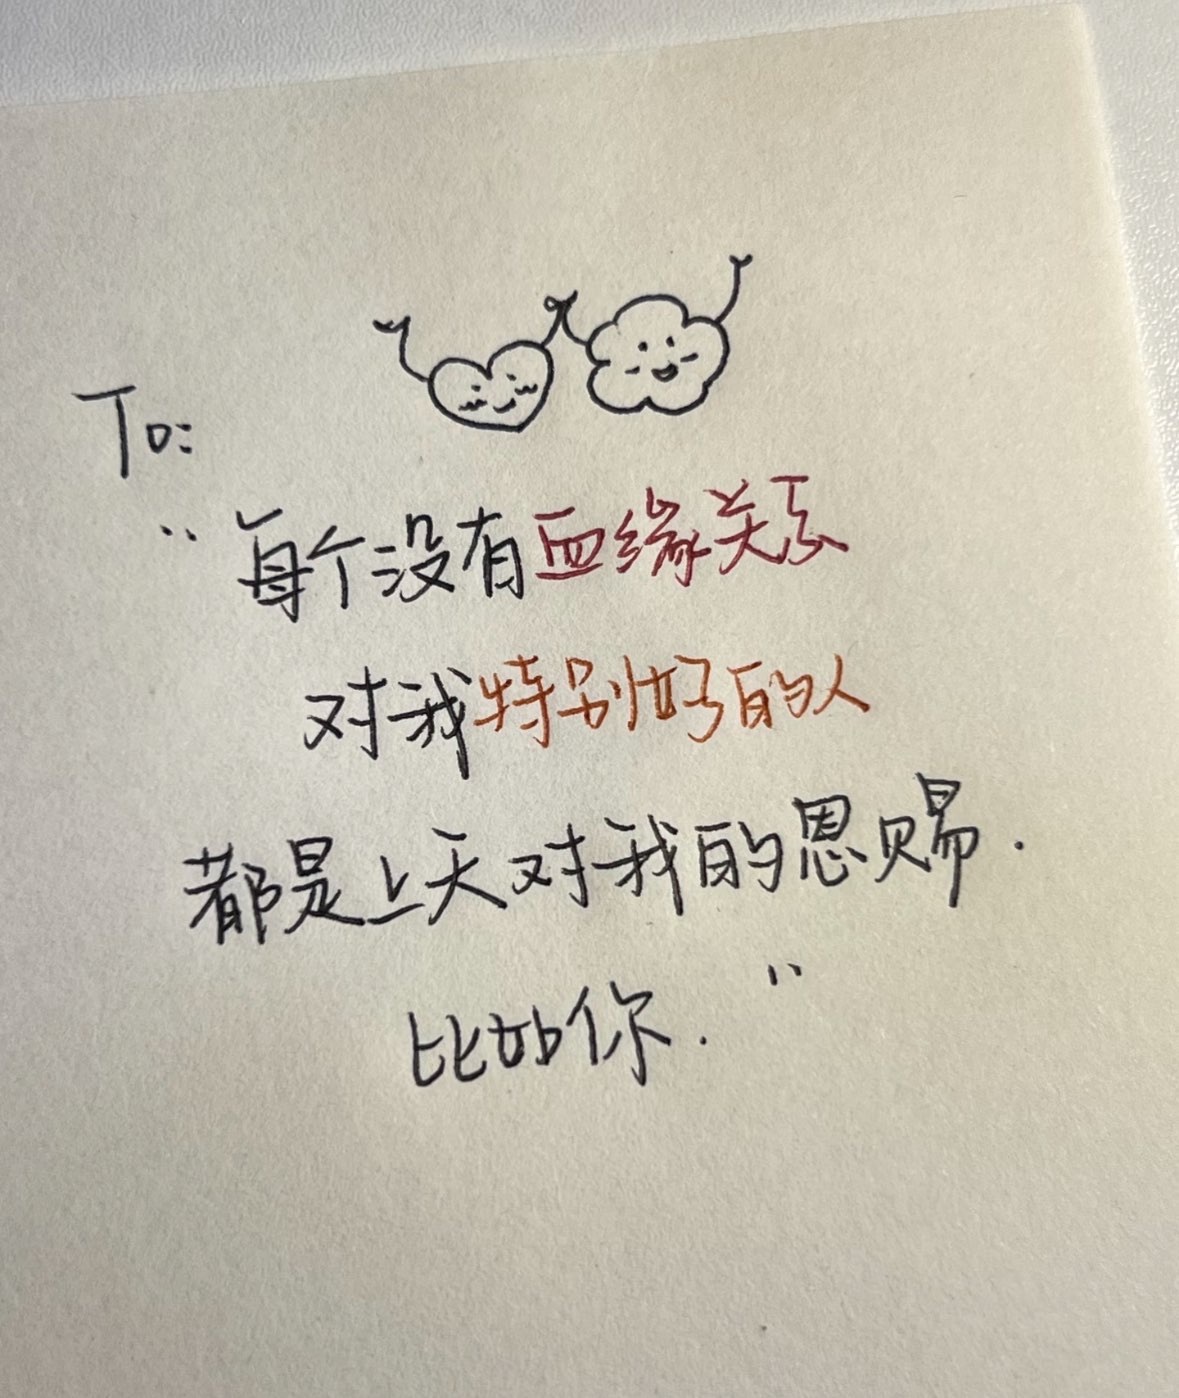 To:
“每个没有血缘关系
对我特别好的人
都是上天对我的恩赐.
比如你.”